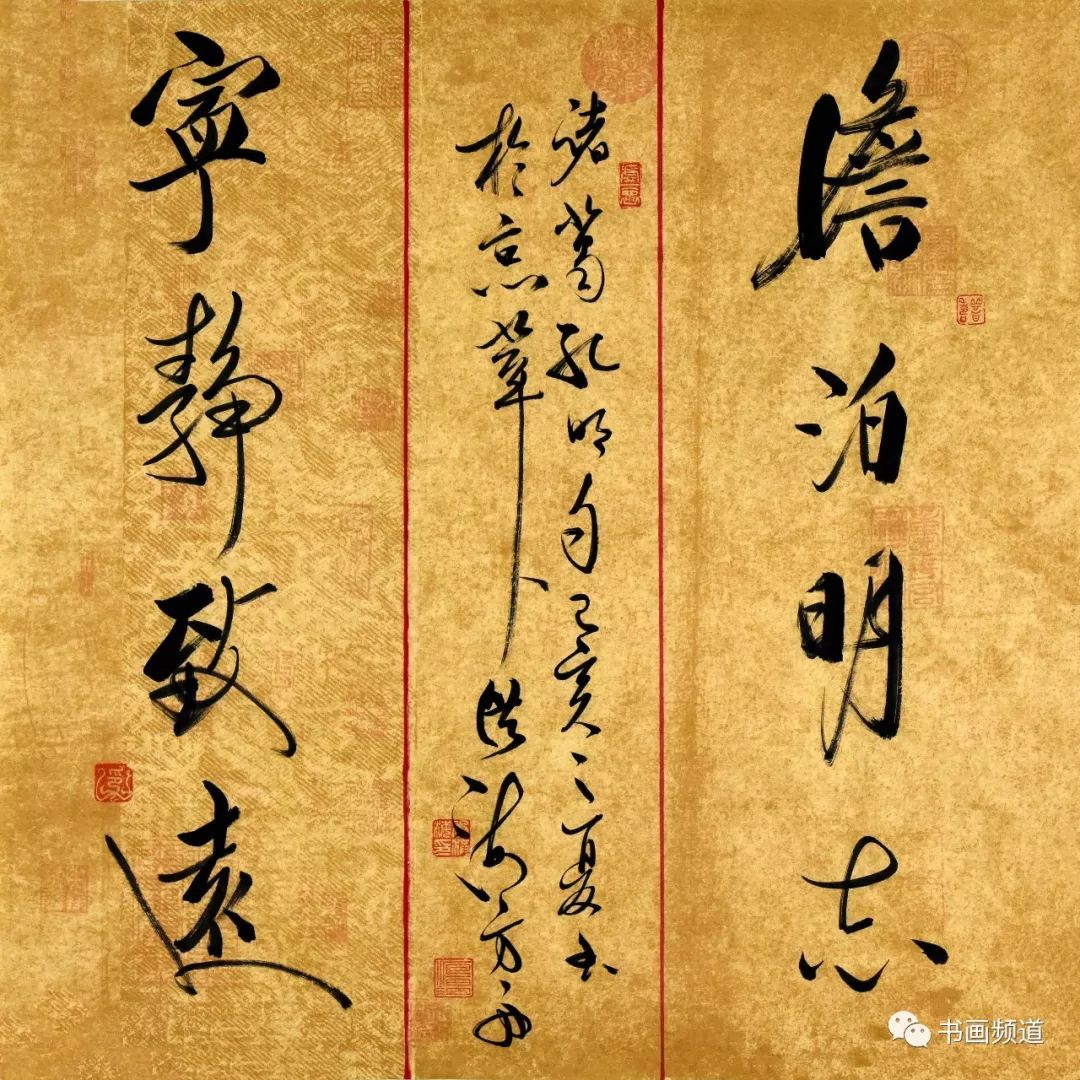 澹泊明志
諸葛孔明句己亥之夏书
於京華洪方舟
寧靜致遠
书画频道